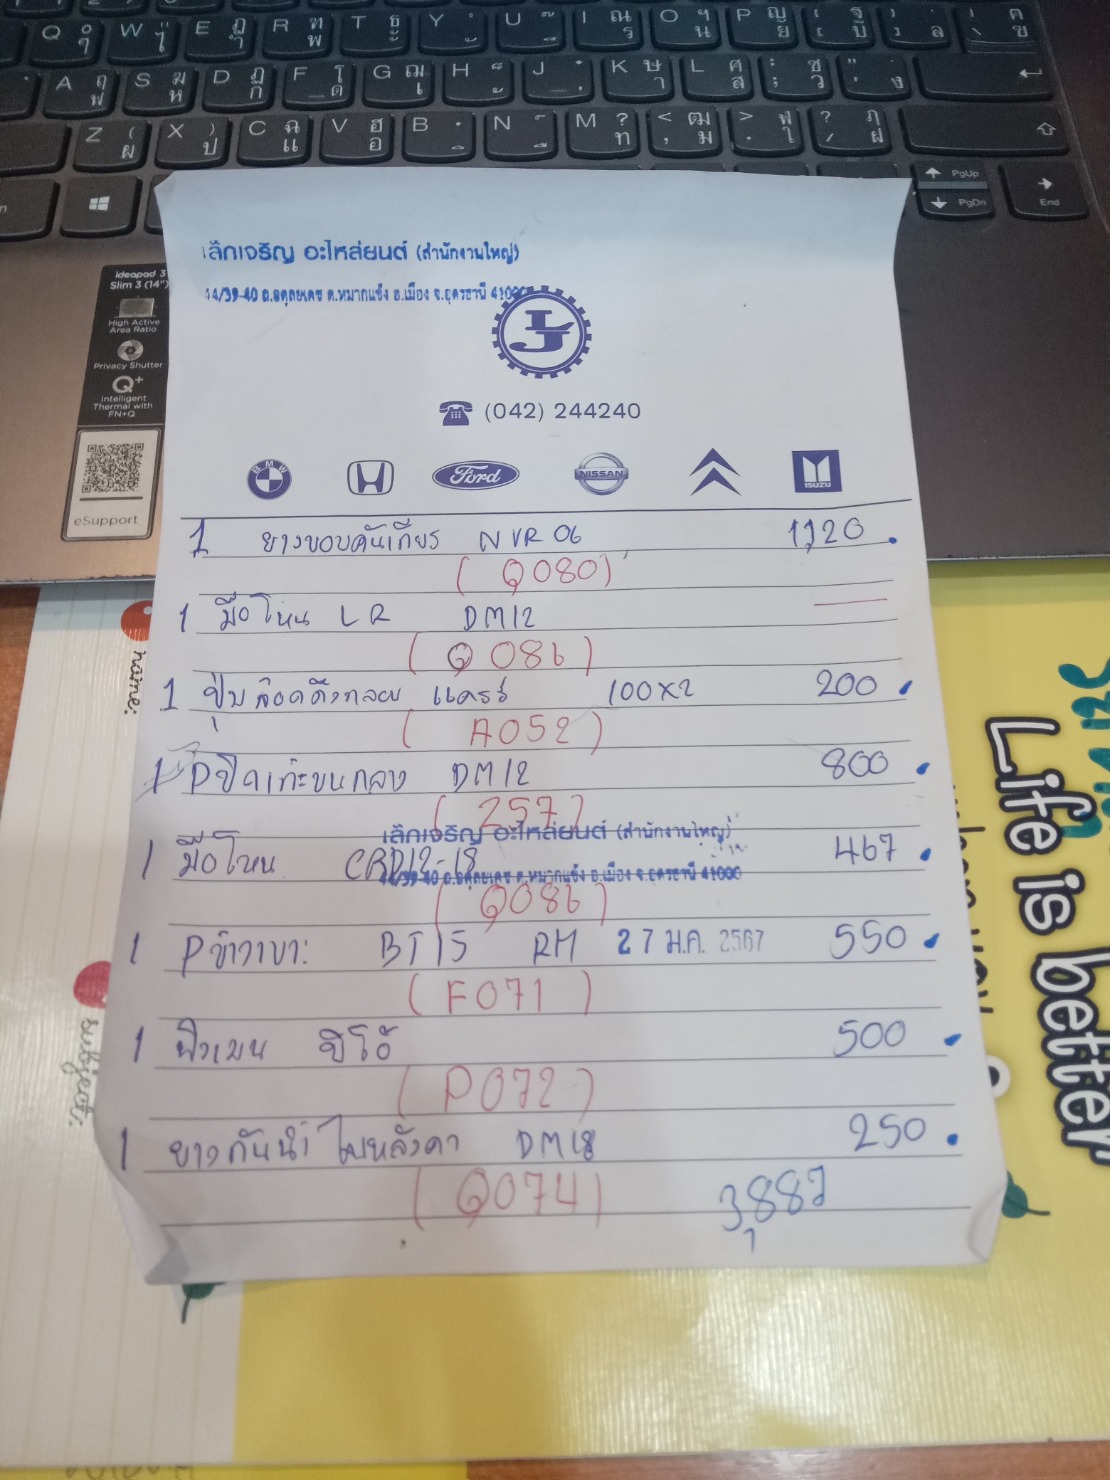 Q ๐ ๆ W " ไ E ฎ ำ R ฑ พ T ธ ะ Y U I ณ ร O ฯ น P ญ ย { ฐ [ บ } , ] ล \ ฅ ฃ
A ฤ ฟ S ฆ ห D ฏ ก F โ ด G ฌ เ H J K ษ า L ศ ส : ซ ; ว " . ' ง
Z ( ผ X ) ป C ฉ แ V ฮ อ B N M ? ท < ฒ , ม > ฬ . ใ ? ฦ / ฝ
PgUp
PgDn
End
ideapad 3
Slim 3 (14")
High Active
Area Ratio
Privacy Shutter
Q+
Intelligent
Thermal with
FN+Q
eSupport
เล็กเจริญ อะไหล่ยนต์ (สำนักงานใหญ่)
44/39-40 ถ.อดุลยเดช ต.หมากแข้ง อ.เมือง จ.อุดรธานี 41000
LJ
(042) 244240
BMW
Ford
NISSAN
ISUZU
1 ยางขอบคันเกียร์ NVR 06 1,120.
(Q080)
1 มือโหน LR DM12
(Q086)
1 ปุ่มล็อคดึงกลอย แครรี่ 100x2 200
(A052)
1 Pปิดเก๊ะบนกลาง DM12 800
(257)
เล็กเจริญ อะไหล่ยนต์ (สำนักงานใหญ่)
1 มือโหน CBD12-18 467
44/39-40 ถ.อดุลยเดช ต.หมากแข้ง อ.เมือง จ.อุดรธานี 41000
(Q086)
1 Pข้าวเบาะ BT15 RH 27 ม.ค. 2567 550
(F071)
1 รีโอ้ 500
(P072)
1 ยางกันน้ำ ไมหลังคา DM18 250.
(Q074) 3,887
name:
subject:
Life is better